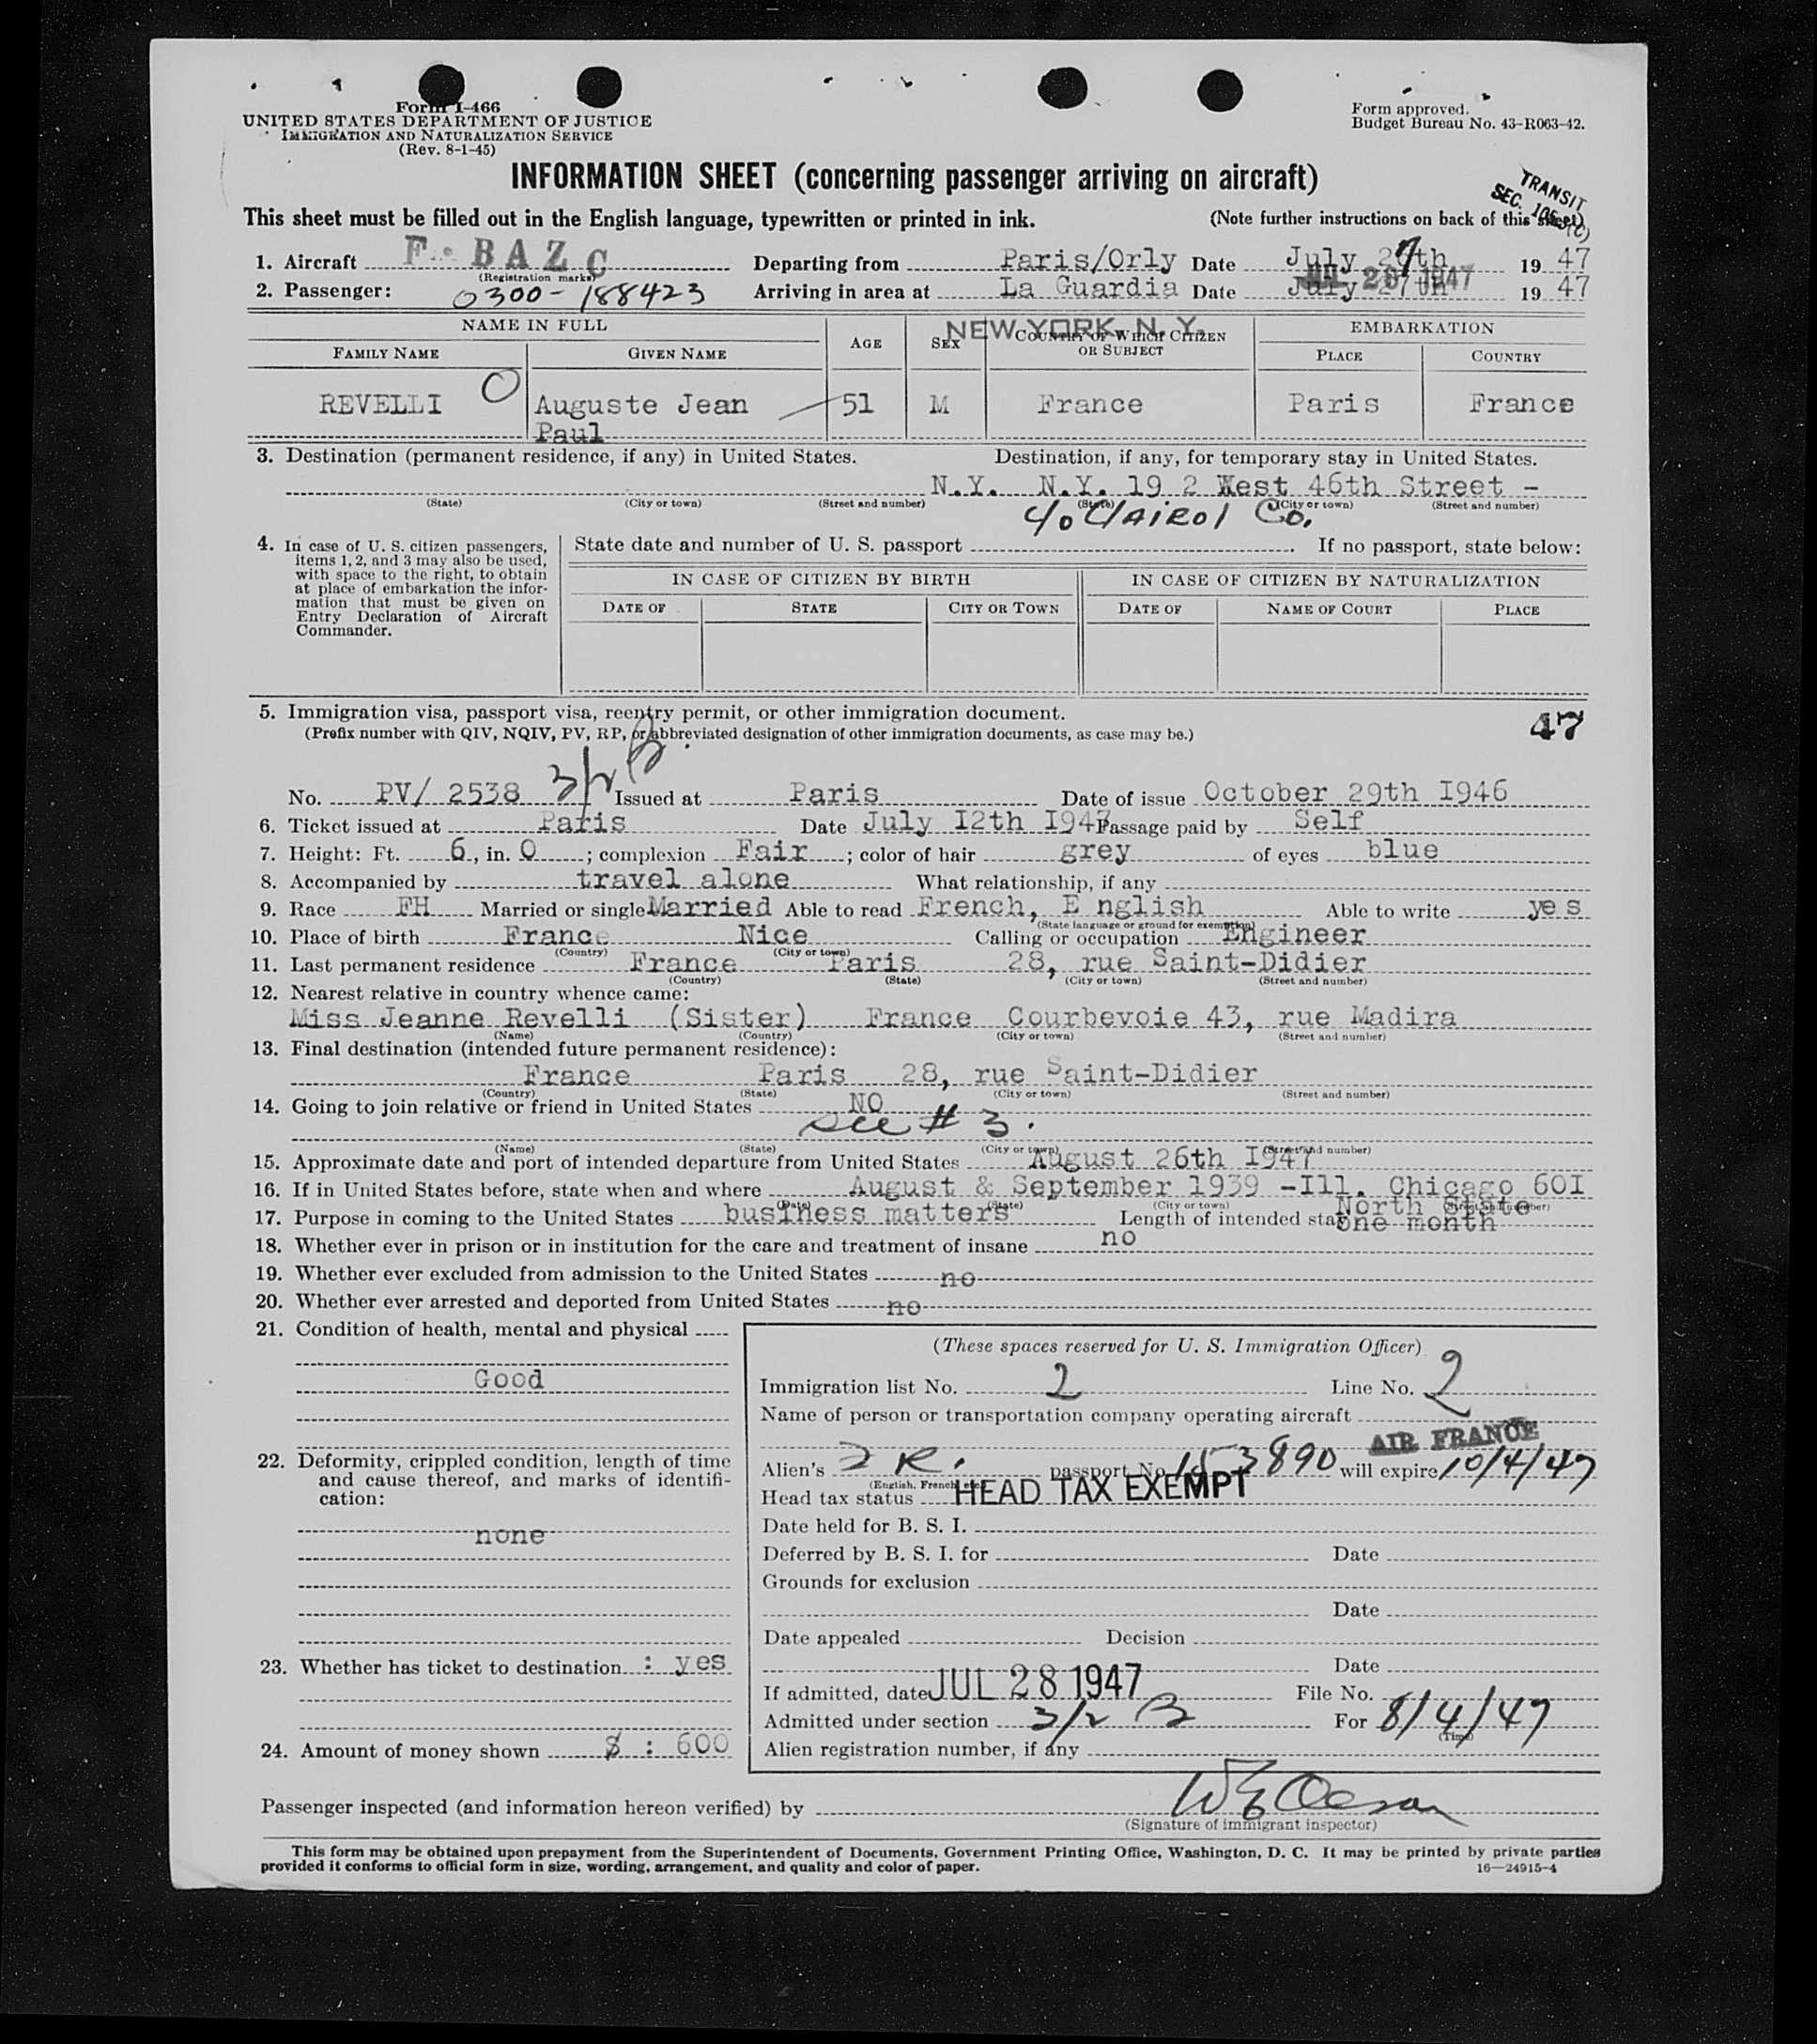 Form I-466
UNITED STATES DEPARTMENT OF JUSTICE
IMMIGRATION AND NATURALIZATION SERVICE
(Rev. 8-1-45)
Form approved.
Budget Bureau No. 43-R063-42.
INFORMATION SHEET (concerning passenger arriving on aircraft)
TRANSIT
SEC.
This sheet must be filled out in the English language, typewritten or printed in ink. (Note further instructions on back of this sheet)
1. Aircraft F. BAZC Departing from Paris/Orly Date July 27th 1947
(Registration marks)
2. Passenger: 0300-188423 Arriving in area at La Guardia Date July 27th 1947
JUL 28 1947
NEW YORK, N. Y.
NAME IN FULL AGE SEX COUNTRY OF WHICH CITIZEN OR SUBJECT EMBARKATION
FAMILY NAME GIVEN NAME PLACE COUNTRY
REVELLI O Auguste Jean 51 M France Paris France
Paul
3. Destination (permanent residence, if any) in United States. Destination, if any, for temporary stay in United States.
N.Y. N.Y. 19 2 West 46th Street -
(State) (City or town) (Street and number) (State) (City or town) (Street and number)
c/o Clairol Co.
4. In case of U. S. citizen passengers, items 1, 2, and 3 may also be used, with space to the right, to obtain at place of embarkation the information that must be given on Entry Declaration of Aircraft Commander.
State date and number of U. S. passport . If no passport, state below:
IN CASE OF CITIZEN BY BIRTH IN CASE OF CITIZEN BY NATURALIZATION
DATE OF STATE CITY OR TOWN DATE OF NAME OF COURT PLACE
5. Immigration visa, passport visa, reentry permit, or other immigration document.
47
(Prefix number with QIV, NQIV, PV, RP, or abbreviated designation of other immigration documents, as case may be.)
3/2 B
No. PV/ 2538 Issued at Paris Date of issue October 29th I946
6. Ticket issued at Paris Date July I2th I947 Passage paid by Self
7. Height: Ft. 6, in. 0; complexion Fair; color of hair grey of eyes blue
8. Accompanied by travel alone What relationship, if any
9. Race FH Married or single Married Able to read French, E nglish Able to write yes
(State language or ground for exemption)
10. Place of birth France Nice Calling or occupation Engineer
(Country) (City or town)
11. Last permanent residence France Paris 28, rue Saint-Didier
(Country) (State) (City or town) (Street and number)
12. Nearest relative in country whence came:
Miss Jeanne Revelli (Sister) France Courbevoie 43, rue Madira
(Name) (Country) (City or town) (Street and number)
13. Final destination (intended future permanent residence):
France Paris 28, rue Saint-Didier
(Country) (State) (City or town) (Street and number)
14. Going to join relative or friend in United States NO
see # 3.
(Name) (State) (City or town) (Street and number)
15. Approximate date and port of intended departure from United States August 26th I947
16. If in United States before, state when and where August & September 1939 -Ill. Chicago 60I
North State
(Date) (State) (City or town) (Street and number)
17. Purpose in coming to the United States business matters Length of intended stay one month
18. Whether ever in prison or in institution for the care and treatment of insane no
19. Whether ever excluded from admission to the United States no
20. Whether ever arrested and deported from United States no
21. Condition of health, mental and physical
Good
22. Deformity, crippled condition, length of time and cause thereof, and marks of identification:
none
23. Whether has ticket to destination : yes
24. Amount of money shown $ : 600
(These spaces reserved for U. S. Immigration Officer)
Immigration list No. 2 Line No. 2
Name of person or transportation company operating aircraft
AIR FRANCE
Alien's passport No. 153890 will expire 10/4/47
(English, French, etc.)
Head tax status HEAD TAX EXEMPT
Date held for B. S. I.
Deferred by B. S. I. for Date
Grounds for exclusion
Date
Date appealed Decision
Date
If admitted, date JUL 28 1947 File No.
Admitted under section 3/2 B For 8/4/47
(Time)
Alien registration number, if any
Passenger inspected (and information hereon verified) by
(Signature of immigrant inspector)
This form may be obtained upon prepayment from the Superintendent of Documents, Government Printing Office, Washington, D. C. It may be printed by private parties
provided it conforms to official form in size, wording, arrangement, and quality and color of paper. 16—24915-4